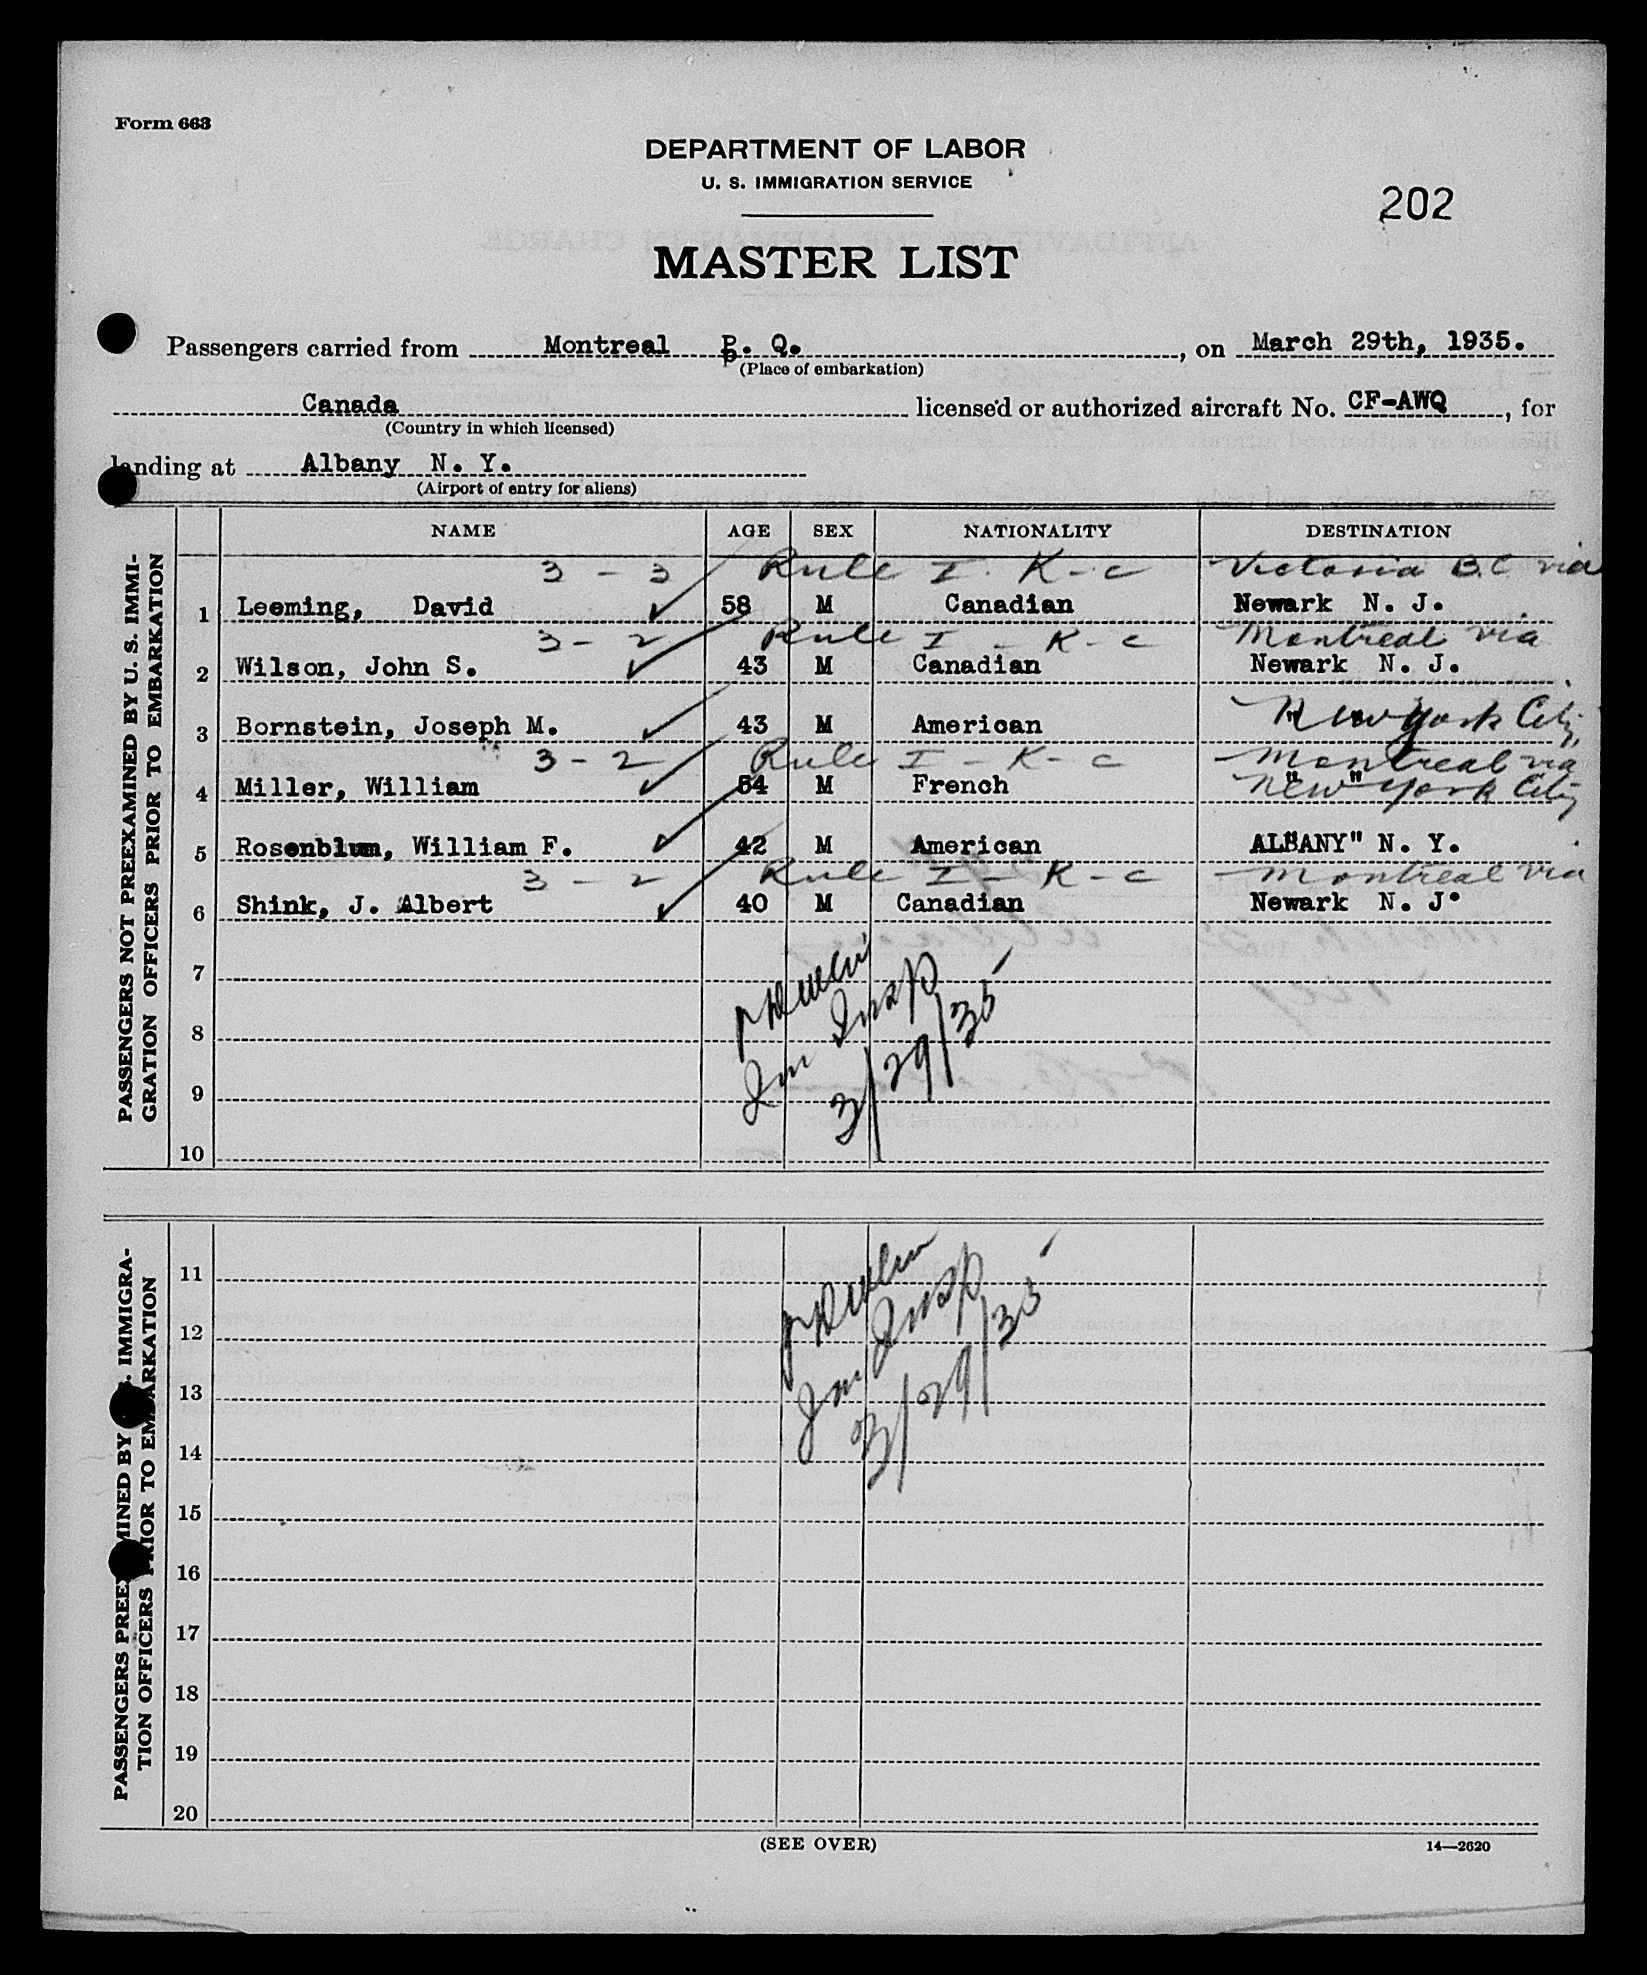 Form 663
DEPARTMENT OF LABOR
U. S. IMMIGRATION SERVICE
202
MASTER LIST
Passengers carried from Montreal P. Q. , on March 29th, 1935.
(Place of embarkation)
Canada licensed or authorized aircraft No. CF-AWQ , for
(Country in which licensed)
landing at Albany N. Y.
(Airport of entry for aliens)
NAME AGE SEX NATIONALITY DESTINATION
PASSENGERS NOT PREEXAMINED BY U. S. IMMI-
GRATION OFFICERS PRIOR TO EMBARKATION
3 - 3 Rule I. K-c Victoria B.C. via
1 Leeming, David 58 M Canadian Newark N. J.
3 - 2 Rule I - K-c Montreal via
2 Wilson, John S. 43 M Canadian Newark N. J.
3 Bornstein, Joseph M. 43 M American New York City
3 - 2 Rule I - K-c Montreal via
4 Miller, William 54 M French " " New York City
5 Rosenblum, William F. 42 M American ALBANY" N. Y.
3 - 2 Rule I - K-c Montreal via
6 Shink, J. Albert 40 M Canadian Newark N. J.
7
8
9
10
Im Insp
3/29/35
PASSENGERS PREEXAMINED BY U. S. IMMIGRA-
TION OFFICERS PRIOR TO EMBARKATION
11
12
13
14
15
16
17
18
19
20
Im Insp
3/29/35
(SEE OVER)
14—2620